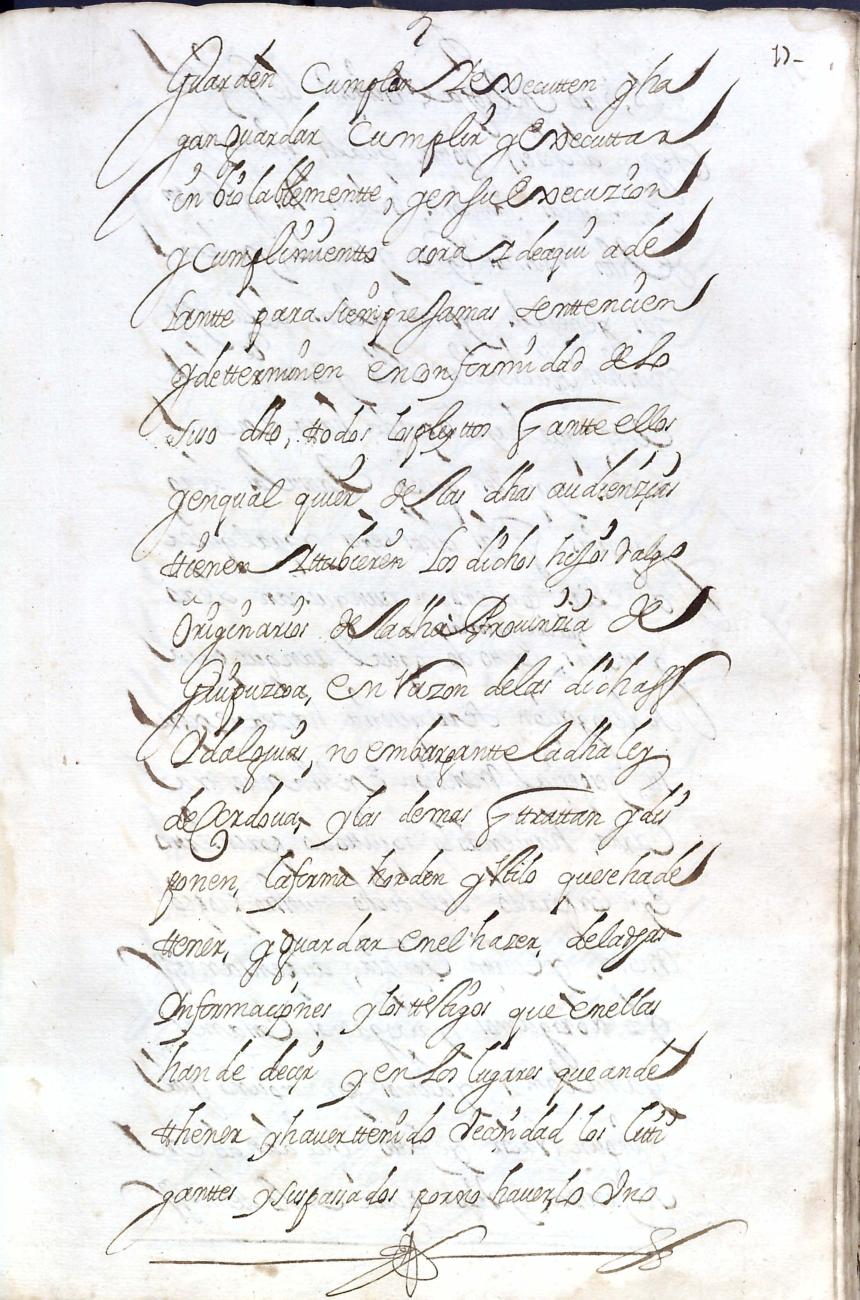 Guarden Cumplan Y executten y ha
gan guardar Cumplir y executtar
in biolablementte, y en su execuzion
y Cumplimientto aora Y de aqui ade
lantte para siempre Jamas senttencien
y detterminen en conformidad de lo
suso dho, ttodos los pleyttos q antte ellos
y en qual quier de las dhas audienzias
ttienen Y ttubieren los dichos hijos dalgo
Originarios de la dha Prouinzia de
Guipuzcoa, en Razon de las dichas
Ydalguias, no embargantte la dha ley
de Cordoua, y las demas q ttrattan y dis
ponen, la forma horden y stilo que se ha de
ttener, y guardar en el hazer, de las
Informaciones y los ttestigos que en ellas
han de decir y en los lugares que an de
thener y hauer ttenido Vecindad los litti
ganttes y sus pasados por no hauerlo Uno